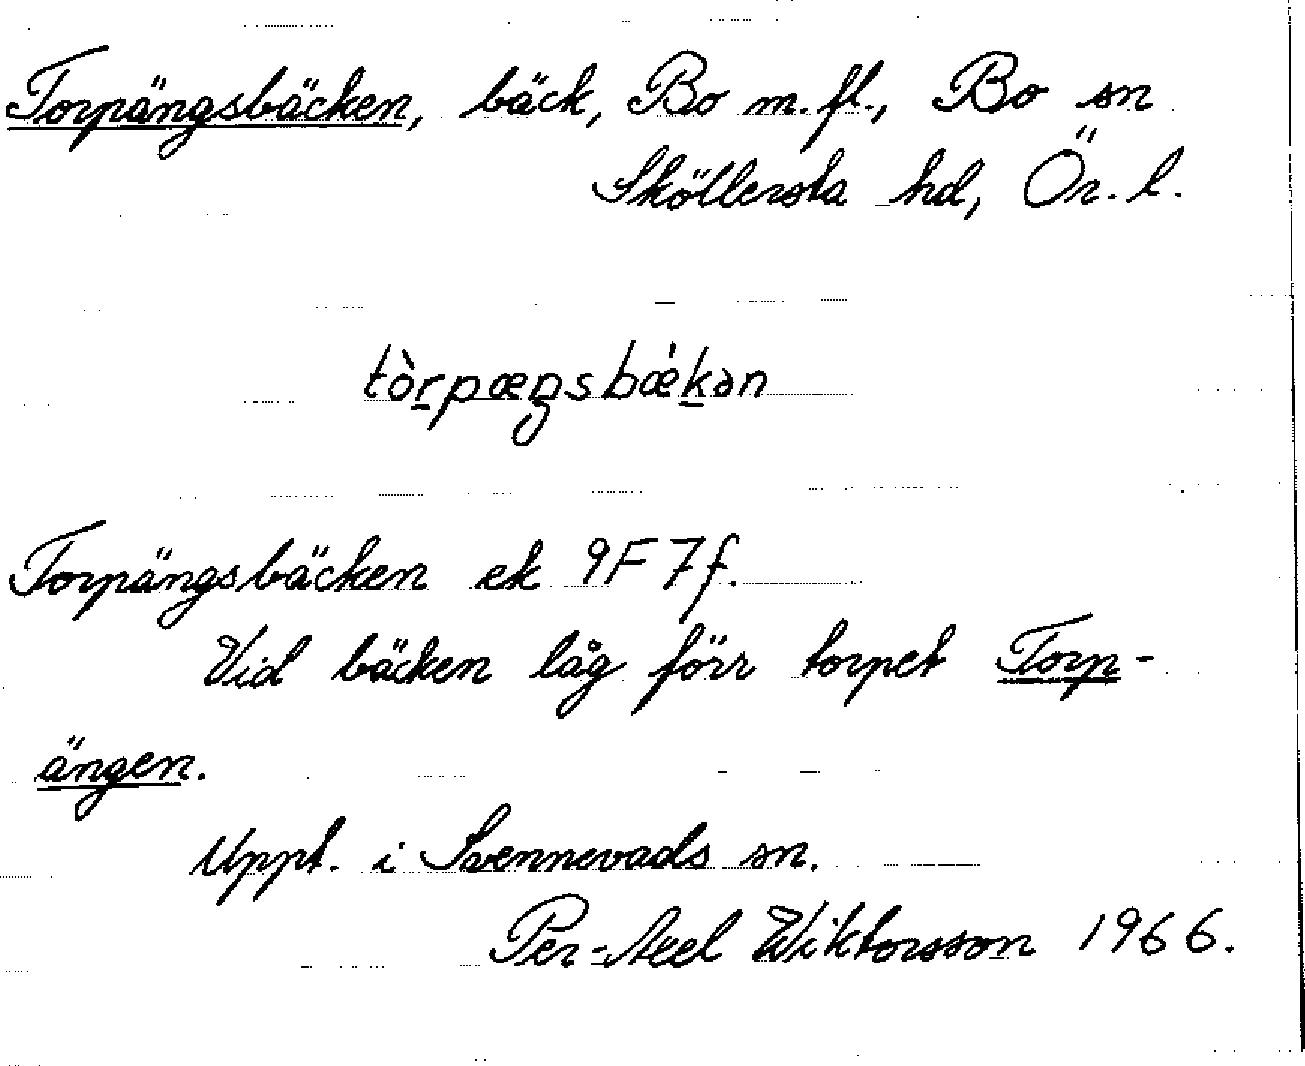 Torpängsbäcken, bäck, Bo m. fl., Bo sn
Sköllersta hd, Ör. l.
tòrpæŋsbǽkən
Torpängsbäcken ek 9F 7f.
Vid bäcken låg förr torpet Torp-
ängen.
Uppt. i Svennevads sn.
Per-Axel Wiktorsson 1966.